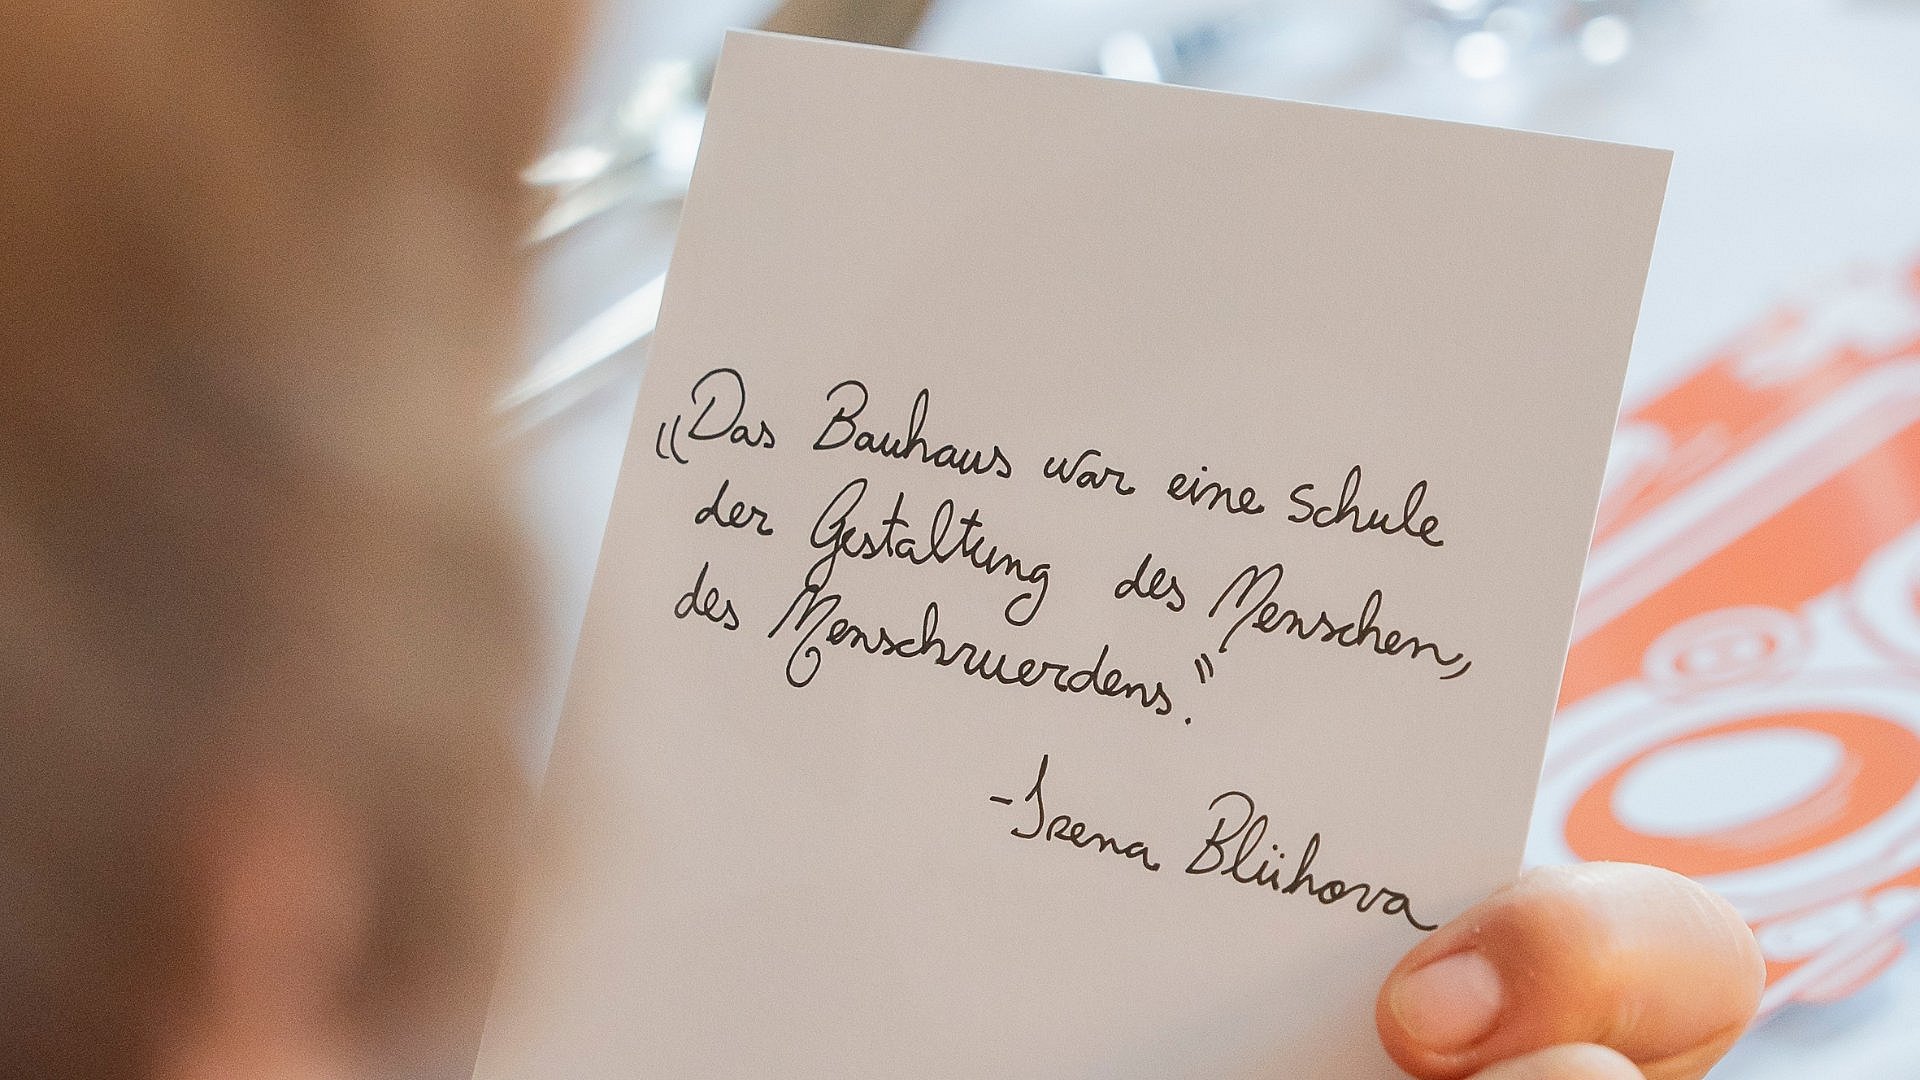 „Das Bauhaus war eine Schule
der Gestaltung des Menschen,
des Menschwerdens."
-Irena Blühova